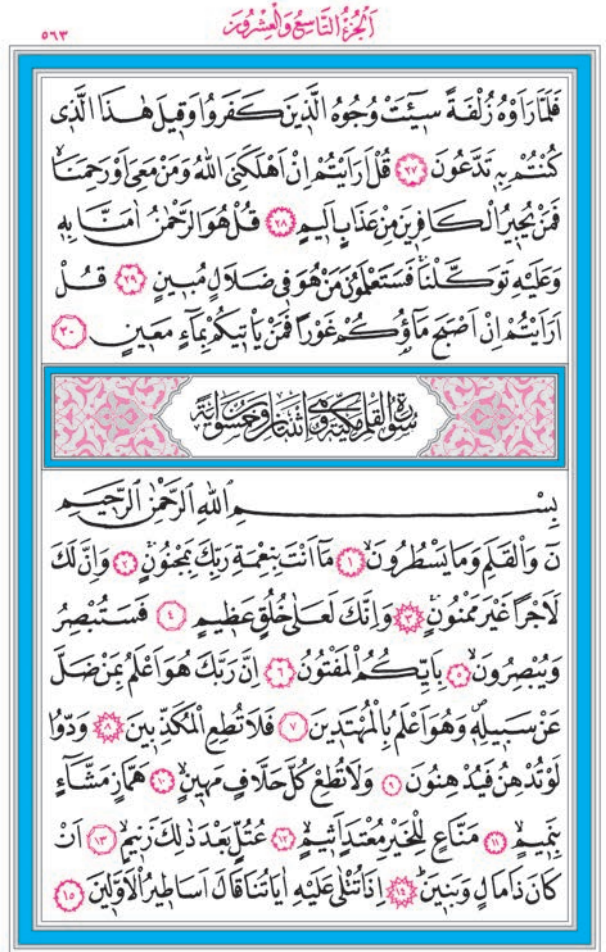 اَلْجُزْءُ التَّاسِعُ وَالْعِشْرُونَ
٥٦٣
فَلَمَّا رَاَوْهُ زُلْفَةً سٖٓيـَٔتْ وُجُوهُ الَّذٖينَ كَفَرُوا وَقٖيلَ هٰذَا الَّذٖى
كُنْتُمْ بِهٖ تَدَّعُونَ ﴿٢٧﴾ قُلْ اَرَاَيْتُمْ اِنْ اَهْلَكَنِىَ اللّٰهُ وَمَنْ مَعِىَ اَوْ رَحِمَنَاۙ
فَمَنْ يُجٖيرُ الْكَافِرٖينَ مِنْ عَذَابٍ اَلٖيمٍ ﴿٢٨﴾ قُلْ هُوَ الرَّحْمٰنُ اٰمَنَّا بِهٖ
وَعَلَيْهِ تَوَكَّلْنَاۚ فَسَتَعْلَمُونَ مَنْ هُوَ فٖى ضَلَالٍ مُبٖينٍ ﴿٢٩﴾ قُلْ
اَرَاَيْتُمْ اِنْ اَصْبَحَ مَٓاؤُ۬كُمْ غَوْرًا فَمَنْ يَاْتٖيكُمْ بِمَٓاءٍ مَعٖينٍ ﴿٣٠﴾
سُورَةُ الْقَلَمِ مَكِّيَّةٌ وَهِىَ اثْنَتَانِ وَخَمْسُونَ اٰيَةً
بِسْمِ اللّٰهِ الرَّحْمٰنِ الرَّحٖيمِ
نٓ وَالْقَلَمِ وَمَا يَسْطُرُونَۙ ﴿١﴾ مَٓا اَنْتَ بِنِعْمَةِ رَبِّكَ بِمَجْنُونٍۚ ﴿٢﴾ وَاِنَّ لَكَ
لَاَجْرًا غَيْرَ مَمْنُونٍۚ ﴿٣﴾ وَاِنَّكَ لَعَلٰى خُلُقٍ عَظٖيمٍ ﴿٤﴾ فَسَتُبْصِرُ
وَيُبْصِرُونَۙ ﴿٥﴾ بِاَيِّكُمُ الْمَفْتُونُ ﴿٦﴾ اِنَّ رَبَّكَ هُوَ اَعْلَمُ بِمَنْ ضَلَّ
عَنْ سَبٖيلِهٖ وَهُوَ اَعْلَمُ بِالْمُهْتَدٖينَ ﴿٧﴾ فَلَا تُطِعِ الْمُكَذِّبٖينَ ﴿٨﴾ وَدُّوا
لَوْ تُدْهِنُ فَيُدْهِنُونَ ﴿٩﴾ وَلَا تُطِعْ كُلَّ حَلَّافٍ مَهٖينٍۙ ﴿١٠﴾ هَمَّازٍ مَشَّٓاءٍ
بِنَمٖيمٍۙ ﴿١١﴾ مَنَّاعٍ لِلْخَيْرِ مُعْتَدٍ اَثٖيمٍۙ ﴿١٢﴾ عُتُلٍّ بَعْدَ ذٰلِكَ زَنٖيمٍۙ ﴿١٣﴾ اَنْ
كَانَ ذَا مَالٍ وَبَنٖينَۜ ﴿١٤﴾ اِذَا تُتْلٰى عَلَيْهِ اٰيَاتُنَا قَالَ اَسَاطٖيرُ الْاَوَّلٖينَ ﴿١٥﴾